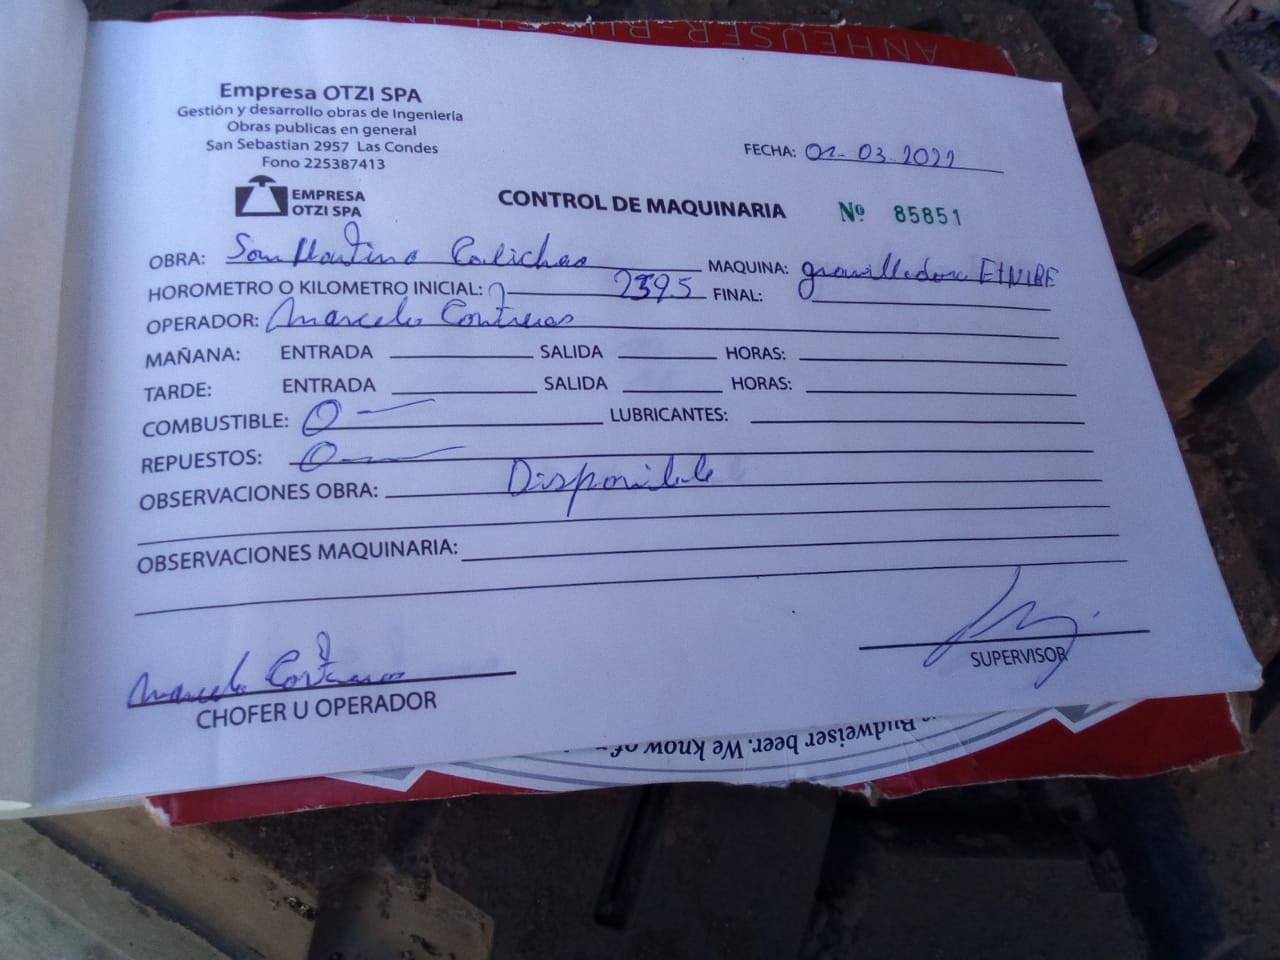 ANHEUSER-BUSCH, INC
Empresa OTZI SPA
Gestión y desarrollo obras de Ingeniería
Obras publicas en general
San Sebastian 2957 Las Condes
Fono 225387413
FECHA: 02-03-2022
EMPRESA
OTZI SPA
CONTROL DE MAQUINARIA Nº 85851
OBRA: San Martino Caliches MAQUINA: gravilladora ETNIRE
HOROMETRO O KILOMETRO INICIAL: 2395 FINAL:
OPERADOR: Marcelo Contreras
MAÑANA: ENTRADA SALIDA HORAS:
TARDE: ENTRADA SALIDA HORAS:
COMBUSTIBLE: 0 LUBRICANTES:
REPUESTOS: 0
OBSERVACIONES OBRA: Disponible
OBSERVACIONES MAQUINARIA:
Marcelo Contreras
CHOFER U OPERADOR
SUPERVISOR
Budweiser beer. We know of